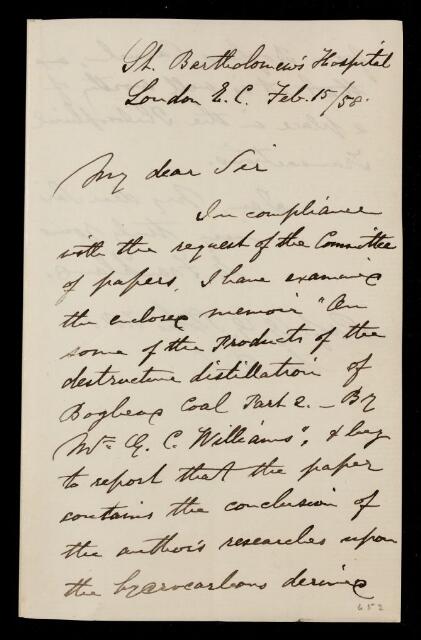 St. Bartholomew's Hospital
London E. C. Feb. 15/58.
My dear Sir
In compliance
with the request of the Committee
of papers, I have examined
the enclosed memoir "On
some of the Products of the
destructive distillation of
Boghead Coal Part 2. - By
Mr. G. C. Williams", & beg
to report that the paper
contains the conclusion of
the author's researches upon
the hydrocarbons derived
652